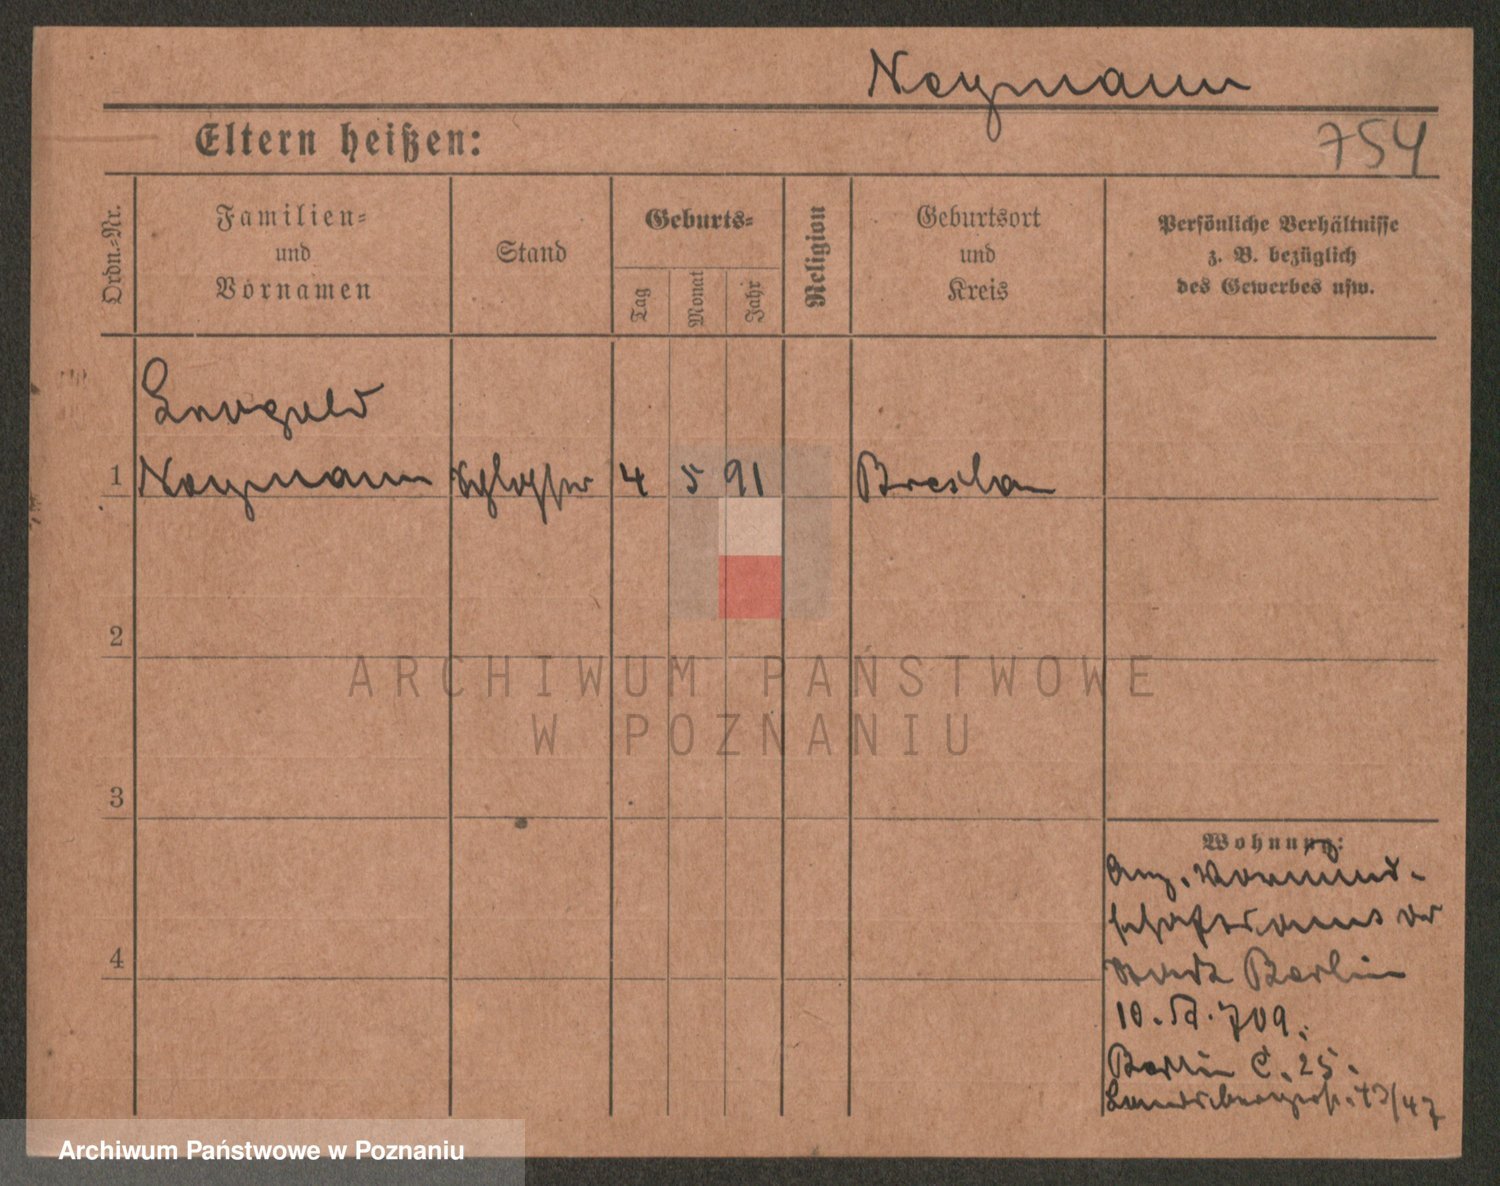 Neymann
754
Eltern heißen:
Ordn.-Nr.
Familien-
und
Vornamen
Stand
Geburts-
Tag
Monat
Jahr
Religion
Geburtsort
und
Kreis
Persönliche Verhältnisse
z. B. bezüglich
des Gewerbes usw.
Leopold
1 Neymann Schlosser 4 5 91 Breslau
2
3
4
Wohnung:
Vormund-
schaftsamt der
Stadt Berlin
10. 709.
Berlin C. 25.
Landsbergerstr. 43/47
ARCHIWUM PAŃSTWOWE
W POZNANIU
Archiwum Państwowe w Poznaniu